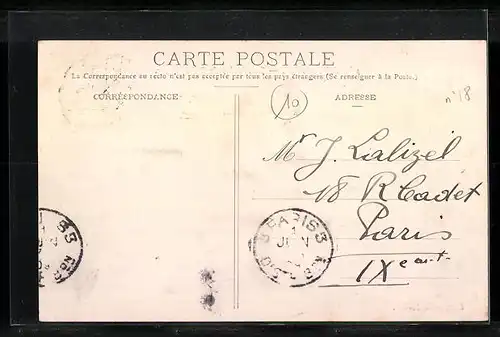 CARTE POSTALE
La Correspondance au recto n'est pas acceptée par tous les pays étrangers (Se renseigner à la Poste.)
CORRESPONDANCE
ADRESSE
10
n° 18
Mr J. Lalizel
18 R Cadet
Paris
IXe arrt
PARIS
JUIN